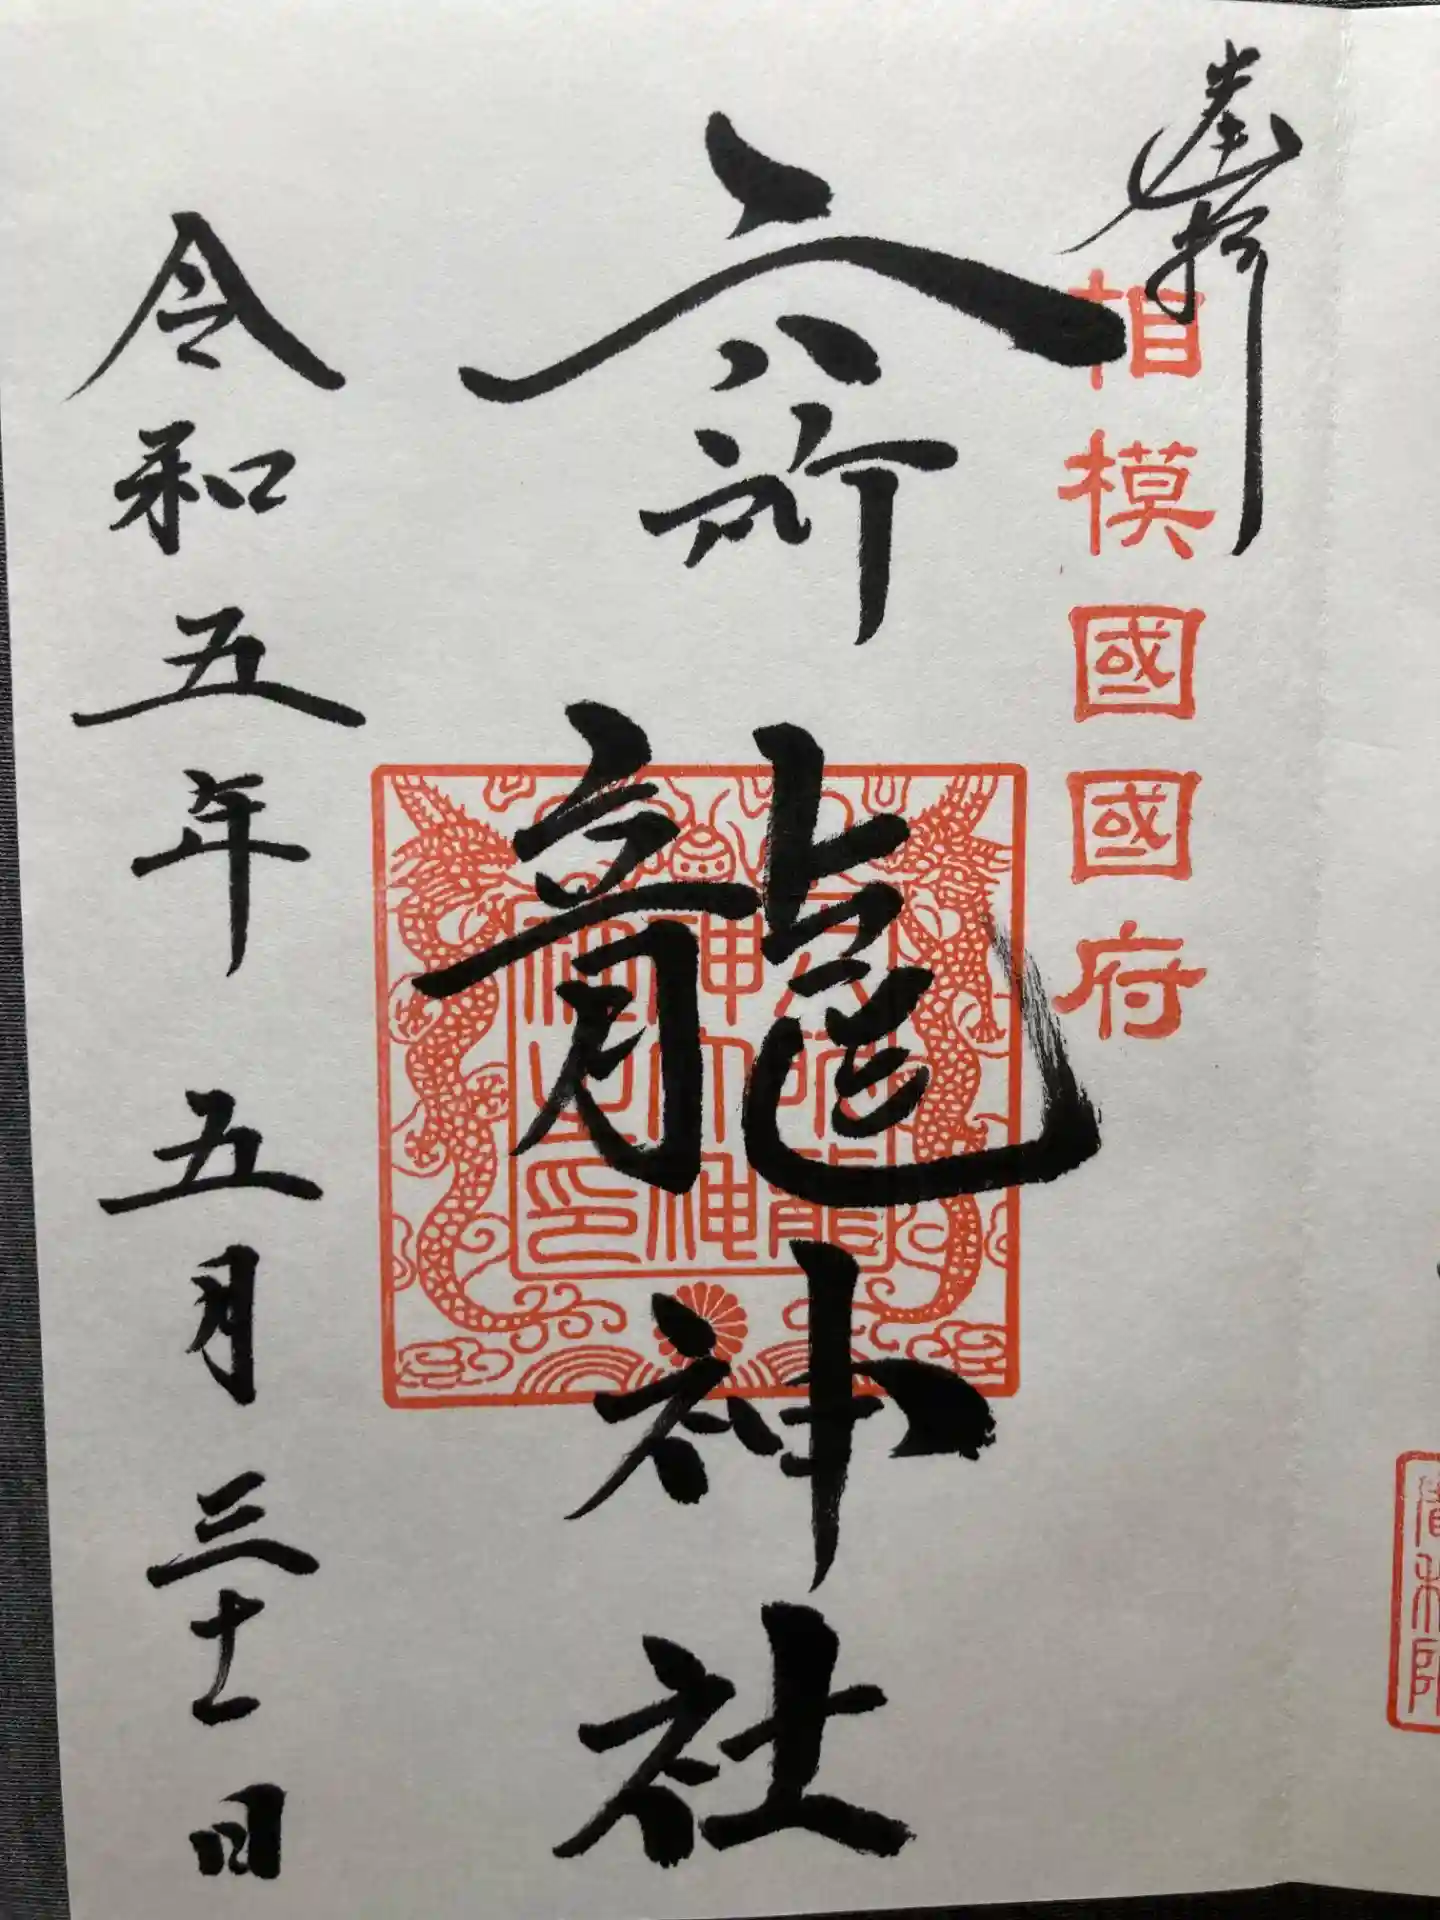 奉拝
相模國國府
六所龍神社
令和五年 五月 三十日